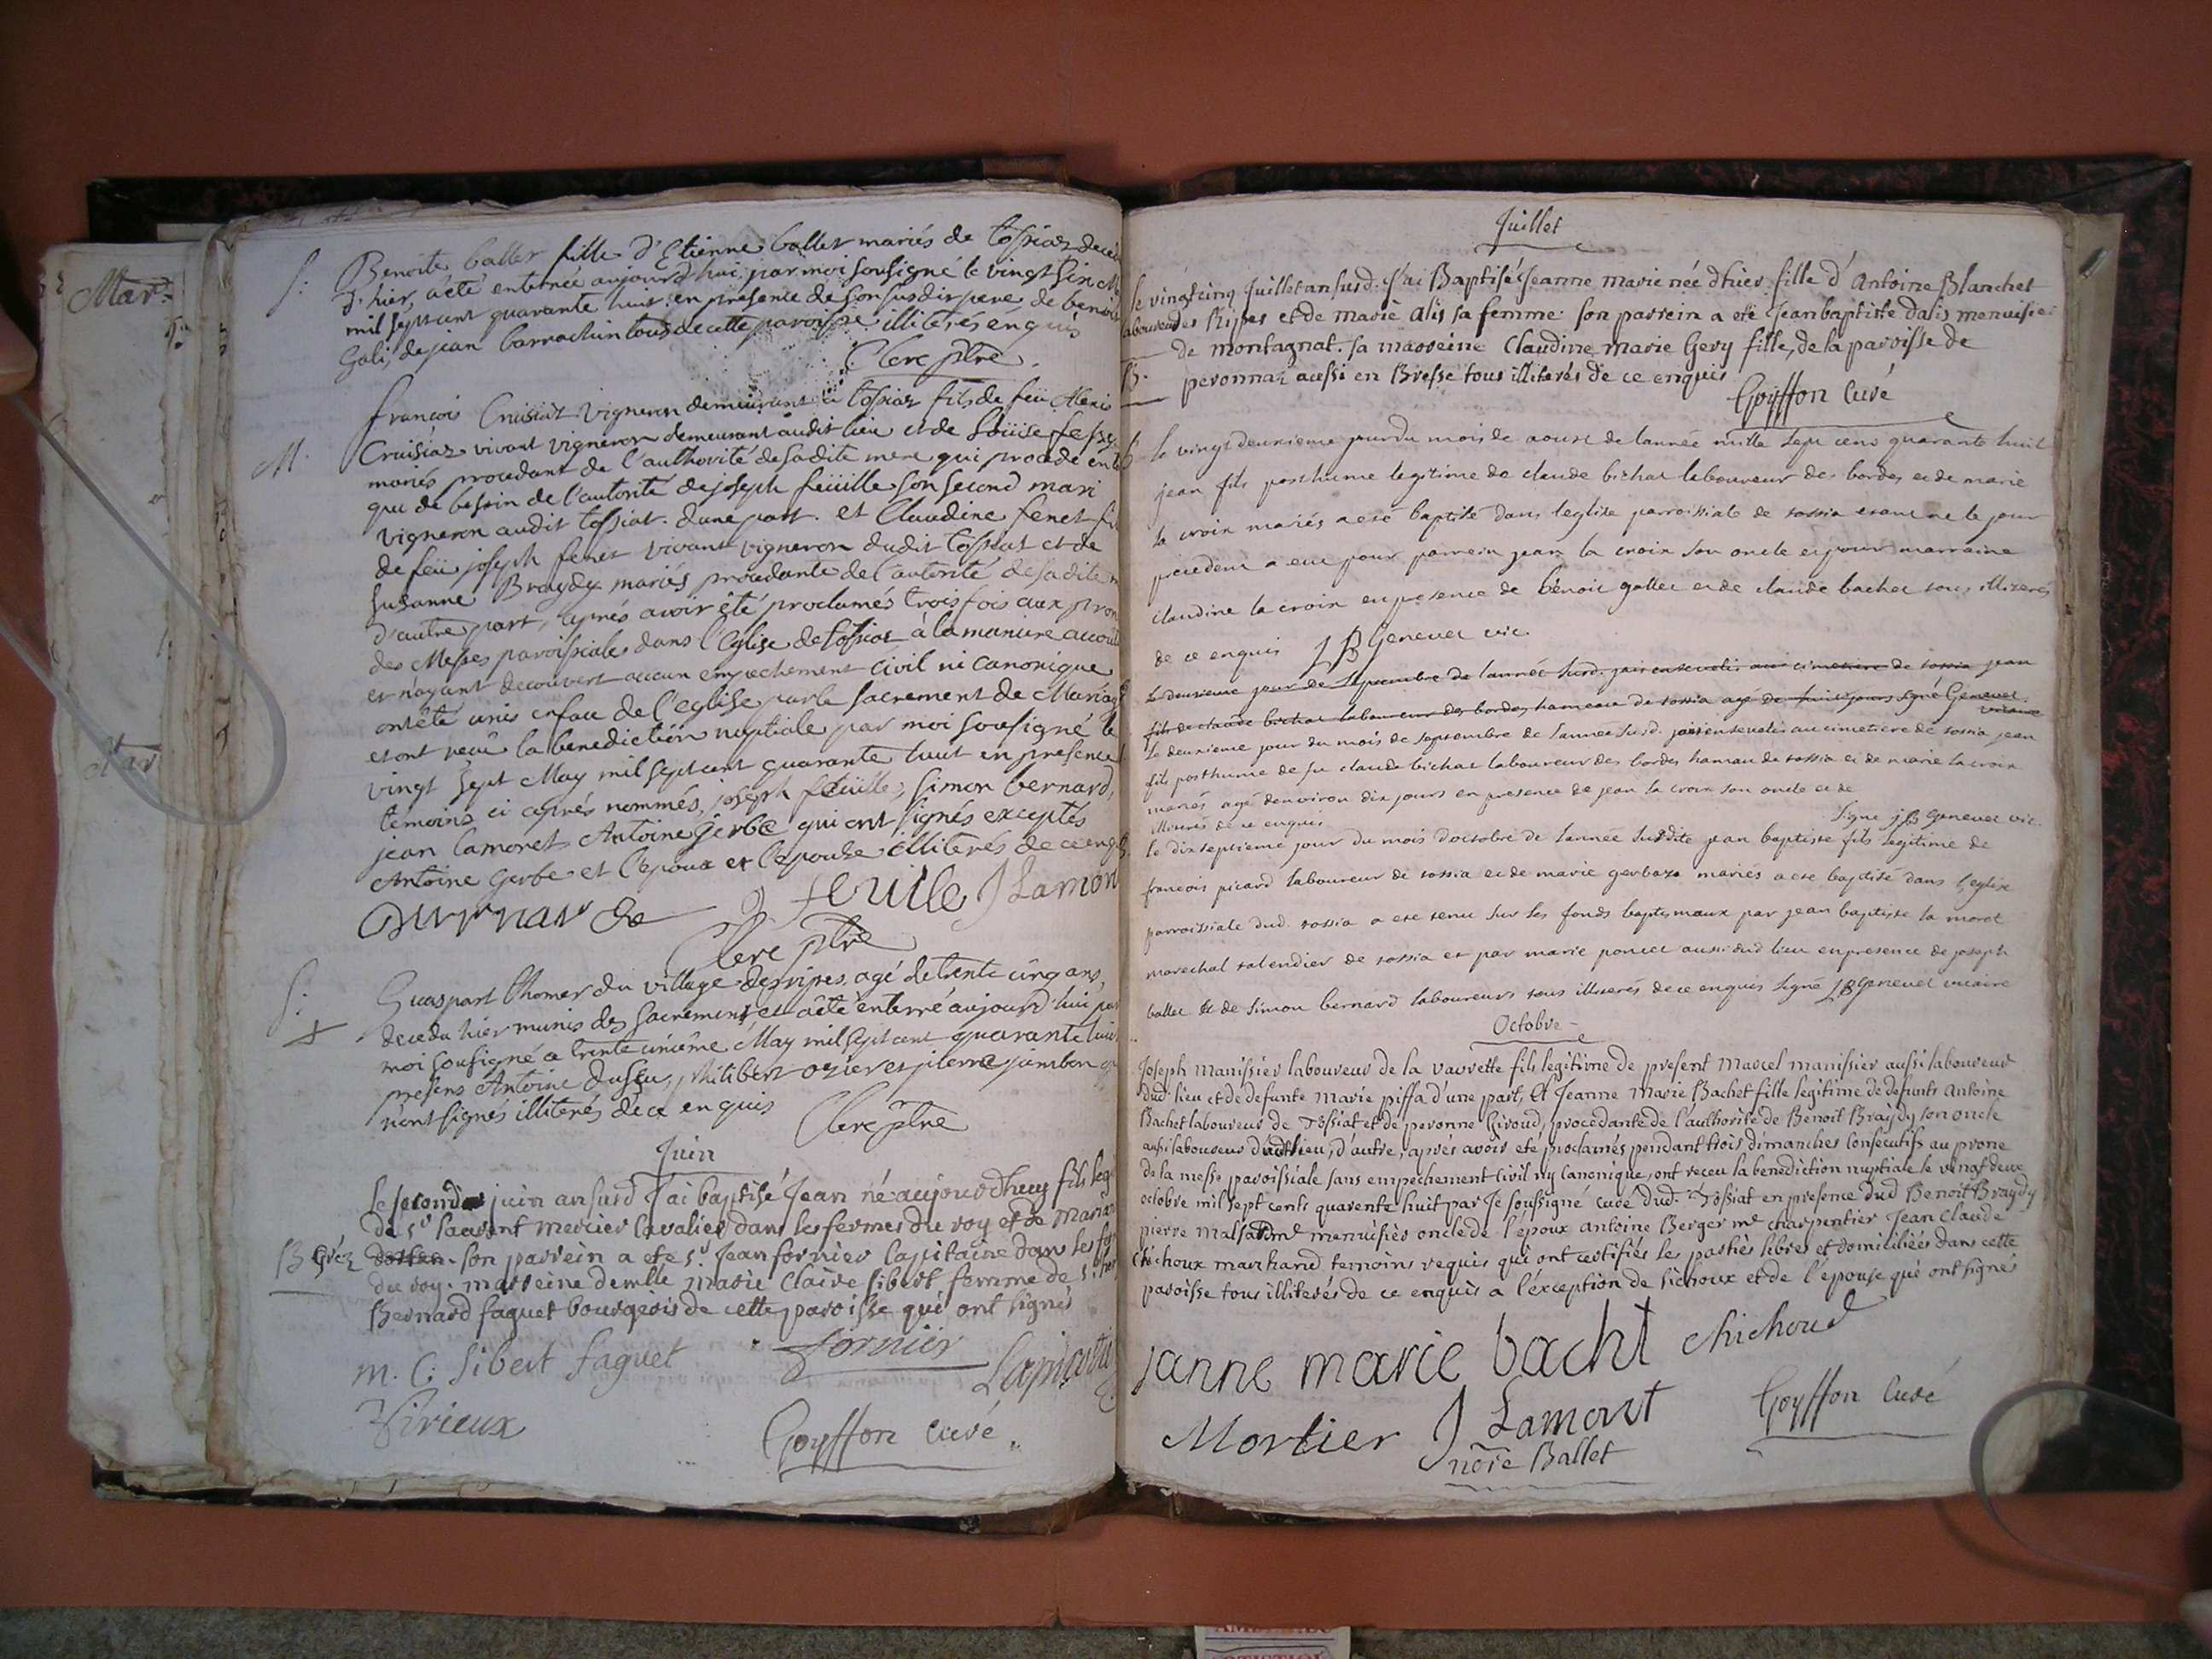 Mar.
Mar
S. Benoite ballet fille d'Etienne ballet mariés de tossiaz
d'hier, a été enterrée aujourd'hui par moi sousigné le vingt
mil septcent quarante huit en présence de son susdit pere de benoit
Gali, de jean barrachin tous de cette paroisse illiterés enquis
Clerc ptre
francois Cruisiat vigneron demeurant à tossiaz fils de feu Alexis
M. Cruisiaz vivant vigneron demeurant audit lieu et de
mariés procedant de l'authorité de sadite mere qui procede en
que de besoin de l'autorité de joseph feüille son second mari
vigneron audit tossiat. d'une part. et Claudine fenet
de feu joseph fenet vivant vigneron dudit tossiat et de
susanne Braydy mariés procedante de l'autorité de sadite
d'autre part, aprés avoir été proclamés trois fois aux
des Messes paroissiales dans l'Eglise de tossiaz à la maniere
et n'ayant decouvert aucun empechement civil ni canonique
ont été unis en face de l'eglise par le sacrement de Mariage
et ont reçu la benediction nuptiale par moi sousigné le
vingt sept May mil septcent quarante huit en presence
temoins ci aprés nommés, joseph feüille, simon bernard,
jean lamoret Antoine Gerbe qui ont signés exceptés
Antoine Gerbe et l'epoux et l'epouse illiterés de ce
J feuille J Lamor
Clerc ptre
S. Guaspart Chomer du village des ripes agé de trente cinq ans,
decedu hier munis des sacrements et a été enterré aujourd'hui par
moi sousigné a trente uniéme May mil septcent quarante huit
presens Antoine philibert ozier et pierre jambon
n'ont signés illiterés de ce enquis Clerc ptre
Juin
le second juin an susd J'ai baptisé Jean né aujourdhuy fils
de Sr laurent mercier Cavalier dans les fermes du roy et de Marie
B son parrein a ete Sr. Jean fornier Capitaine dans les
du roy. marreine demlle marie Claire sibert femme de Sr.
Bernard faguet bourgeois de cette paroisse qui ont signés
m. C. Sibert faguet fornier
Virieux Goyffon curé
Juillet
le vingt cinq Juillet an susd. J'ai Baptisé Jeanne marie née d'hier fille d'Antoine Blanchet
laboureur des Rippes et de marie alis sa femme. son parrein a eté Jean baptiste dalis menuisier
de montagnat. sa marreine Claudine marie Gery fille, de la paroisse de
B. peronnaz aussi en Bresse tous illiterés de ce enquis
Goyffon Curé
le vingt deuxieme jour du mois de aoust de lannée mille sept cens quarante huit
jean fils posthume legitime de claude bichat laboureur des bordes et de marie
la croix mariés a esté baptisé dans leglise parroissiale de tossia etant ne le jour
precedent a eut pour parrein jean la croix son oncle et pour marraine
claudine la croix en presence de benoit gallet et de claude bachet tous illiterés
de ce enquis J B Genevet vic.
Le deuxieme jour de septembre de lannée susd. jai ensevelis au cimetiere de tossia jean
fils de claude bichat laboureur des bordes hameau de tossia agé de huit jours signé Genevet
vicaire
le deuxieme jour du mois de septembre de lannée susd. jai ensevelis au cimetiere de tossia jean
fils posthume de fu claude bichat laboureur des bordes hamau de tossia et de marie lacroix
mariés agé denviron dix jours en presence de jean la croix son oncle et de
illiterés de ce enquis Signe J B Genevet vic.
le dix septieme jour du mois d'octobre de lannée susdite jean baptiste fils legitime de
francois picard laboureur de tossia et de marie gerbaxe mariés a ete baptisé dans leglise
parroissiale dud. tossia a ete tenu sur les fonds baptismaux par jean baptiste la moret
marechal talendier de tossia et par marie poncet aussi dud lieu en presence de joseph
ballet et de simon bernard laboureurs tous illiterés de ce enquis signé J B Genevet vicaire
Octobre
Joseph manissier laboureur de la vavrette fils legitime de present Marcel manissier aussi laboureur
dud. lieu et de defunte marie piffa d'une part, Et Jeanne Marie Bachet fille legitime de defunts Antoine
Bachet laboureur de Tossiat et de peronne Giroud, procedante de l'authorité de Benoit Braydy son oncle
aussi laboureur dudit lieu, d'autre, aprés avoir eté proclamés pendant trois dimanches consecutifs au prone
de la messe paroissiale sans empechement civil ny canonique, ont receu la benediction nuptiale le vingt deux
octobre mil sept cents quarente huit par Je soussigné curé dud. Tossiat en presence dud Benoit Braydy
pierre menuisier oncle de l'époux antoine Berger me charpentier Jean Claude
Chichoux marchand temoins requis qui ont certifiés les parties libres et domiciliées dans cette
paroisse tous illiterés de ce enquis a l'exception de sichoux et de l'epouse qui ont signés
janne marie bacht chichoud
Mortier J Lamort Goyffon curé
nore Ballet